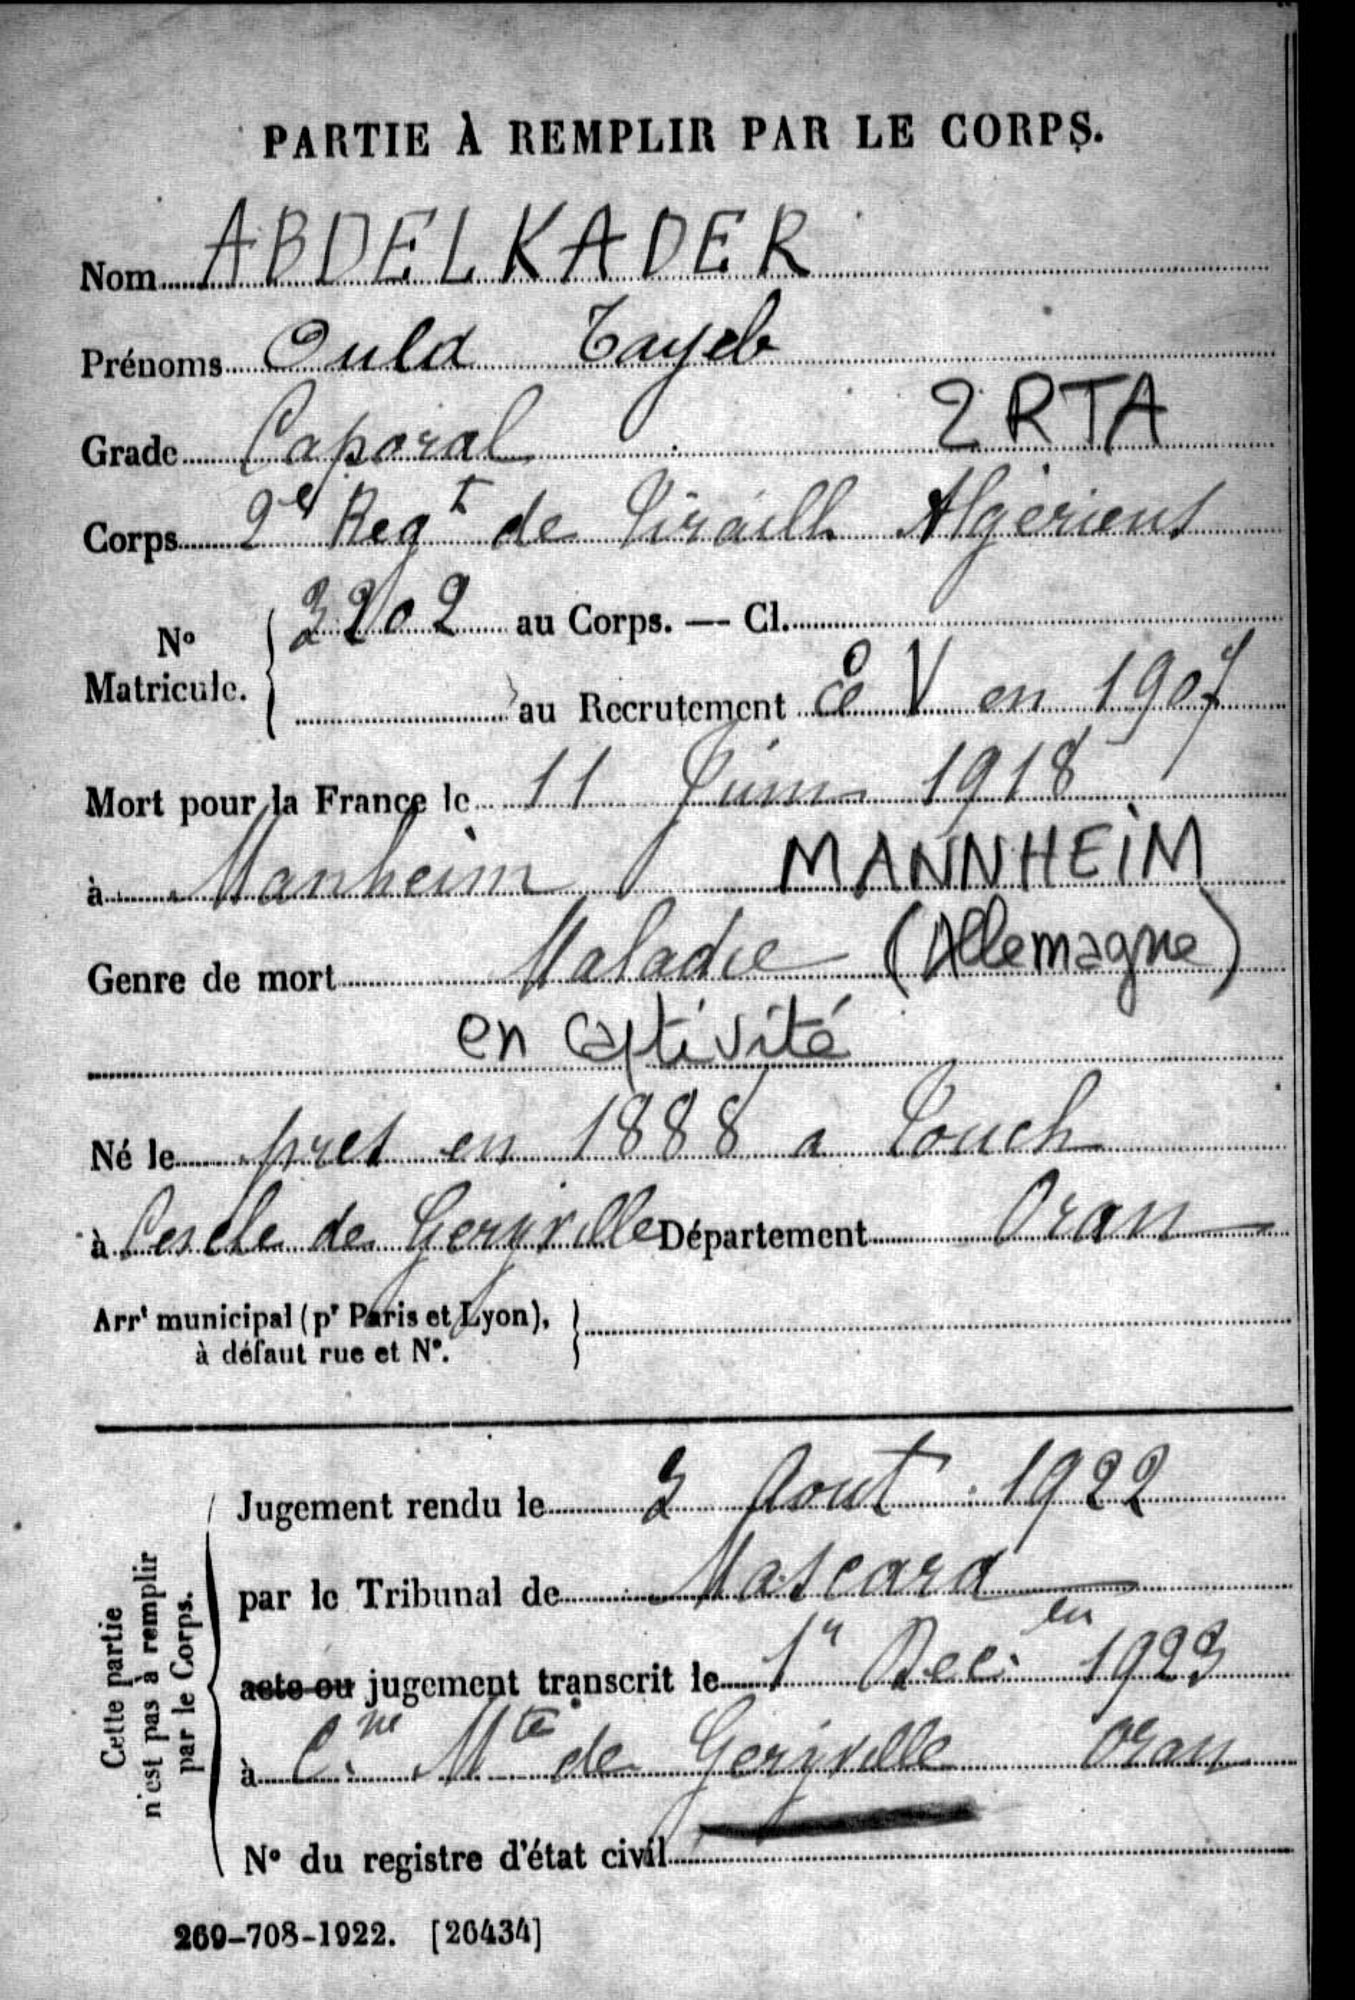 PARTIE À REMPLIR PAR LE CORPS.
Nom ABDELKADER
Prénoms Ould Tayeb
Grade Caporal 2 RTA
Corps 2e Regt de Tiraill Algeriens
No Matricule. 3202 au Corps. — Cl.
au Recrutement V en 1907
Mort pour la France le 11 Juin 1918
à Manheim MANNHEIM
Genre de mort Maladie (Allemagne)
en captivité
Né le pres en 1888 a
à Cercle de Geryville Département Oran
Arrt municipal (pr Paris et Lyon),
à défaut rue et No.
Cette partie
n'est pas à remplir
par le Corps.
Jugement rendu le Aout 1922
par le Tribunal de Mascara
en
acte ou jugement transcrit le 1er Dec. 1923
à Cne Mte de Geryville Oran
No du registre d'état civil
269-708-1922. [26434]